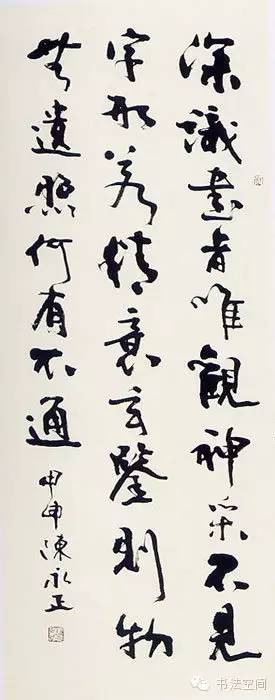 深識書者唯觀神采不見
字形若精意玄鑒則物
無遺照何有不通
甲申陳永正
书法空间